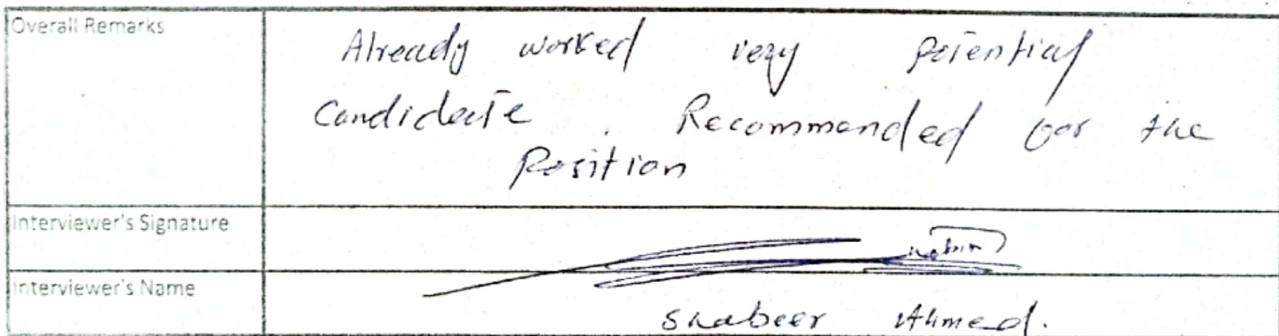 Overall Remarks
Already worked very potential
Candidate. Recommended for the
Position
Interviewer's Signature
Interviewer's Name
Shabeer Ahmed.